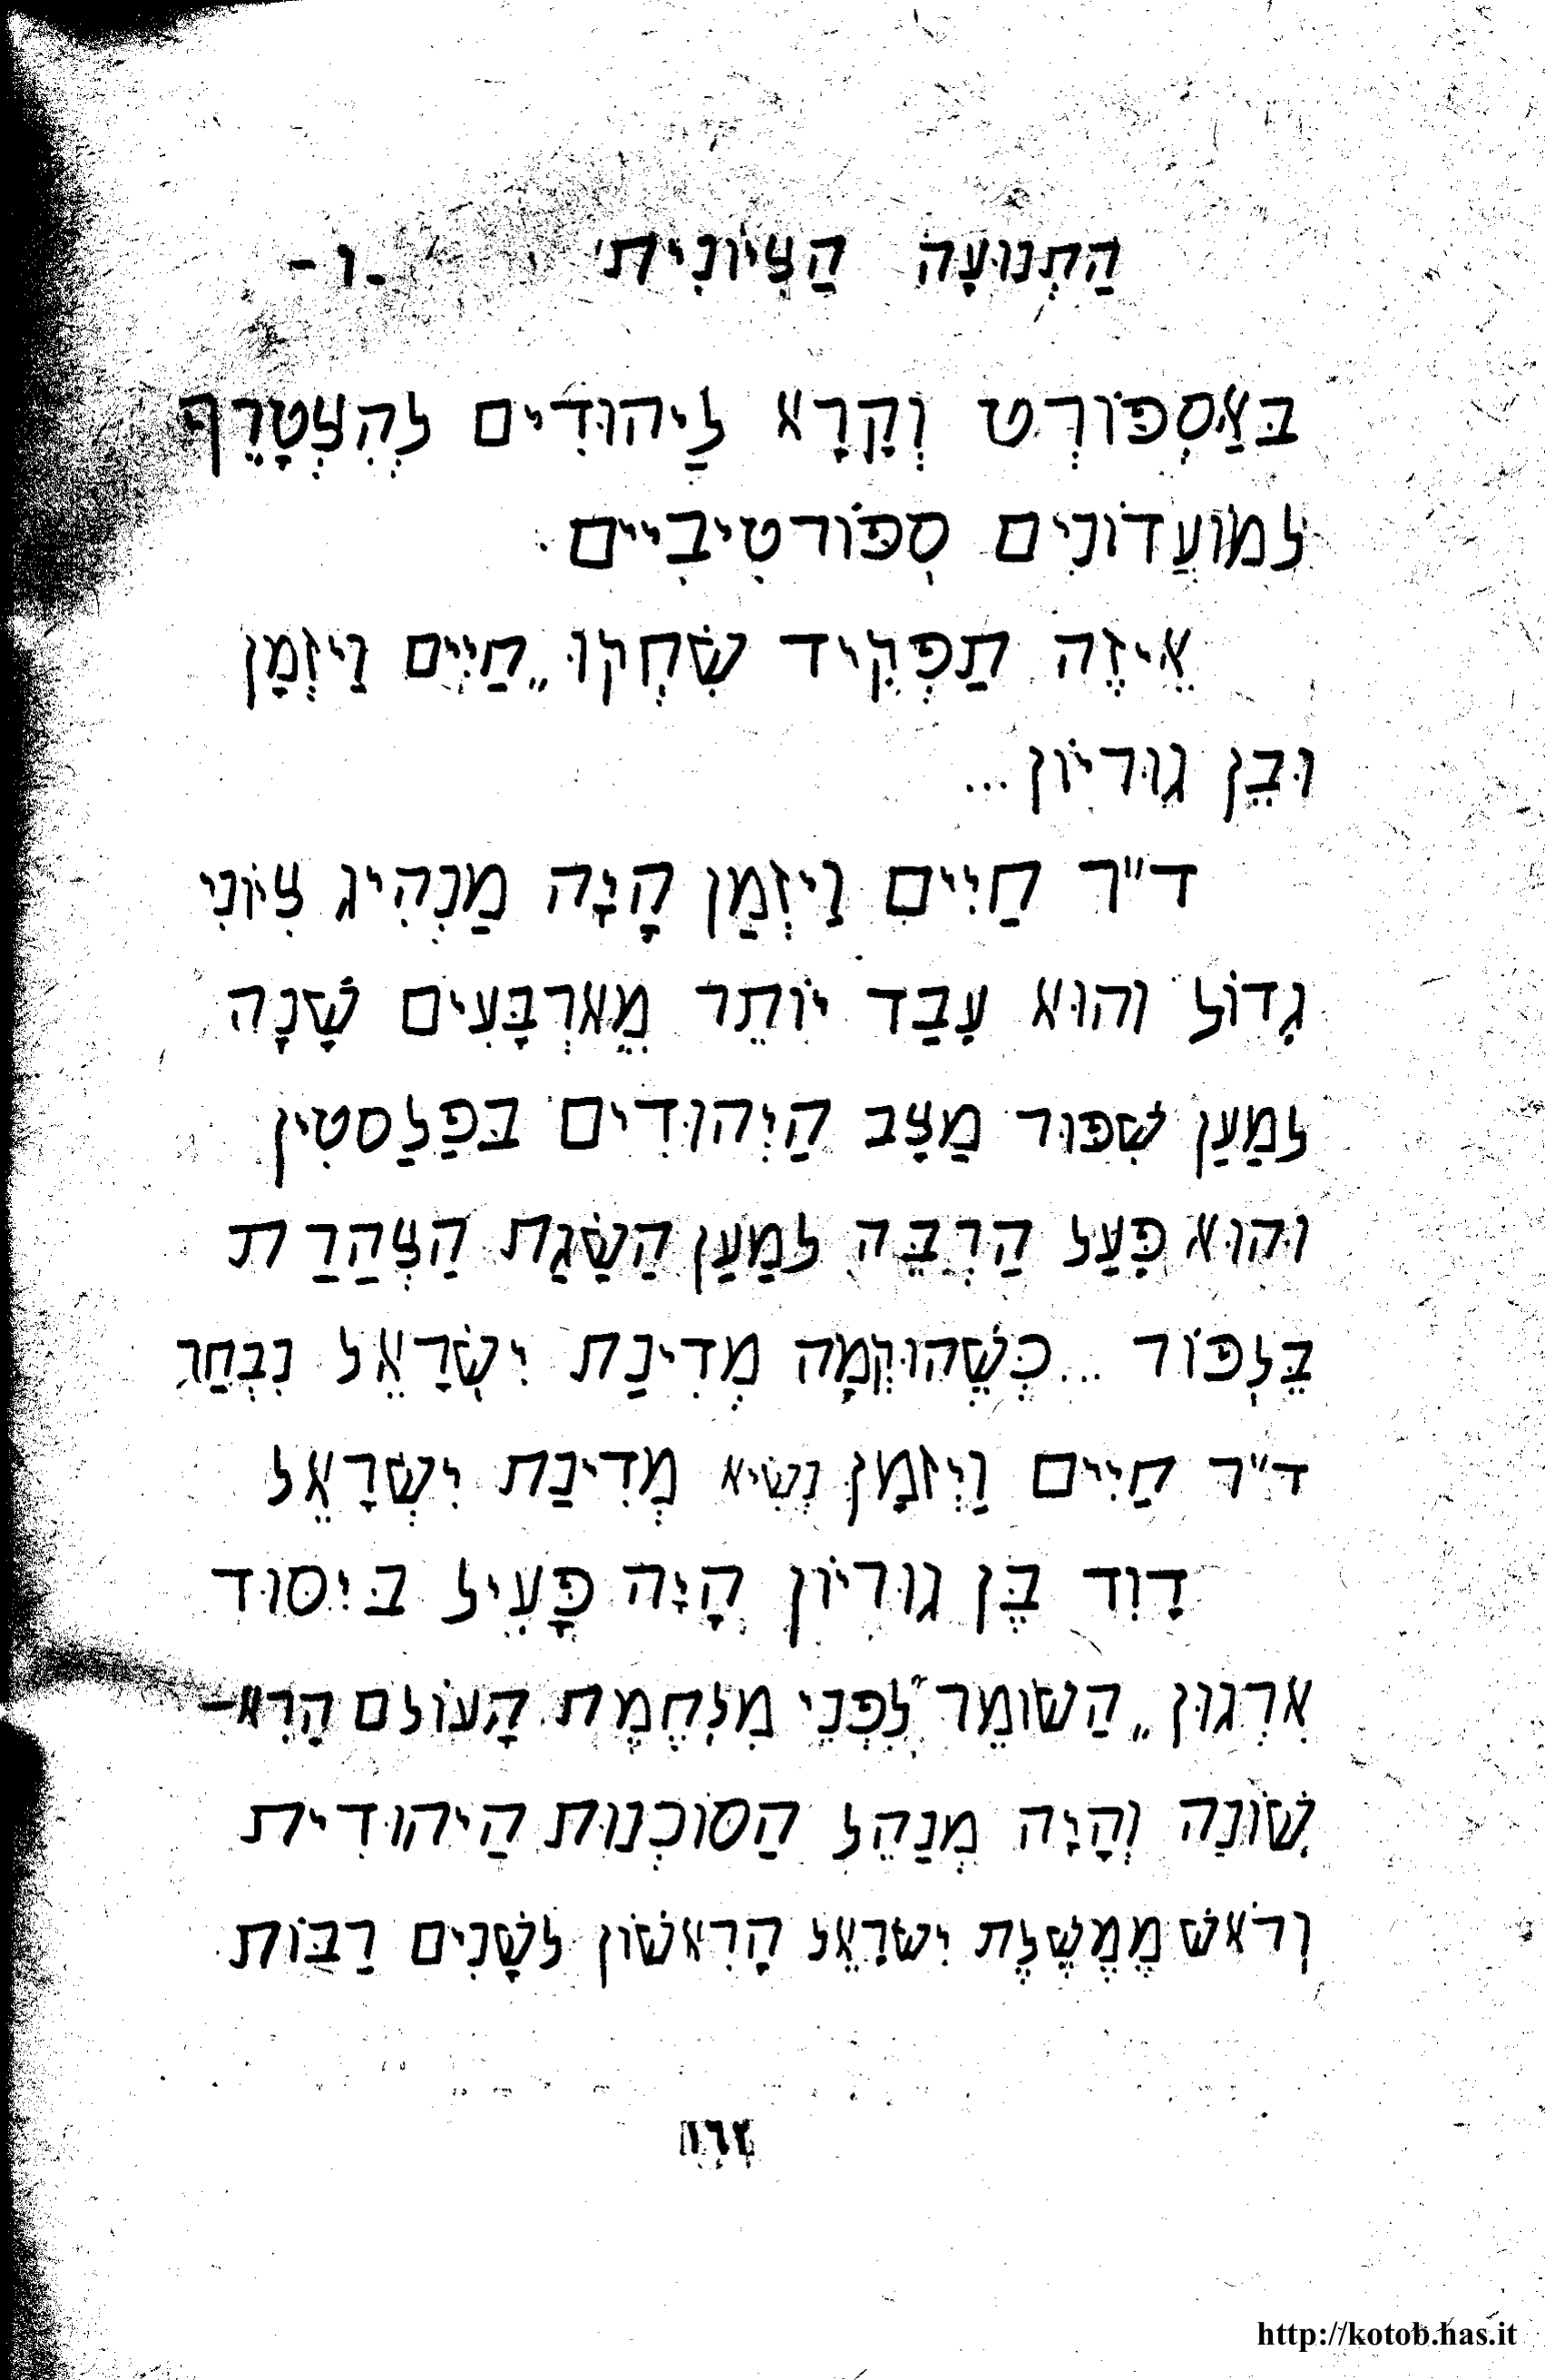 הַתְנוּעָה הַצִיוֹנִית -ו-
בּאַסְפּוֹרְט וְקָרָא לַיהוּדִים לְהִצְטָרֵף
לִמוֹעֲדוֹנִים סְפּוֹרטִיבִיים.
אֵיזֶה תַפְקִיד שִׂחְקוּ „חַיִים וַיזְמָן
וּבֵן גוּריוֹן...
ד"ר חַיִים וַיזְמַן הָיָה מַנְהִיג צִיוֹנִי
גָדוֹל והוּא עָבַד יוֹתֵר מֵאַרְבָּעִים שָׁנָה
לִמַעַן שִׁפּוּר מַצָב הַיִהוּדִים בּפַלַסטִין
וּהוּא פָּעַל הַרְבֵּה לִמַעַן הַשַׂגַת הַצְהַרַת
בֵּלִפוֹר ...כְּשֶׁהוּקְמָה מְדִינַת יִשְׂרָאֵל נִבְחַר
ד"ר חַיִים וַיְזמָן נְשִׂיא מְדִינַת יִשְׂרָאֵל
דָוִד בֶּן גוּריוֹן הָיָה פָּעִיל בּיִסּוּד
אִרְגוּן „הַשׁוֹמֵר" לִפְנֵי מִלְחֶמֶת הָעוֹלם הָרִא-
שׁוֹנַה וְהָיָה מְנַהֵל הַסוֹכְנוּת הַיהוּדִית
וְרֹאשׁ מֶמֶשֶׁלֶת יִשׂרָאֵל הָרִאשׁוֹן לשָׁנִים רַבּוֹת
http://kotob.has.it